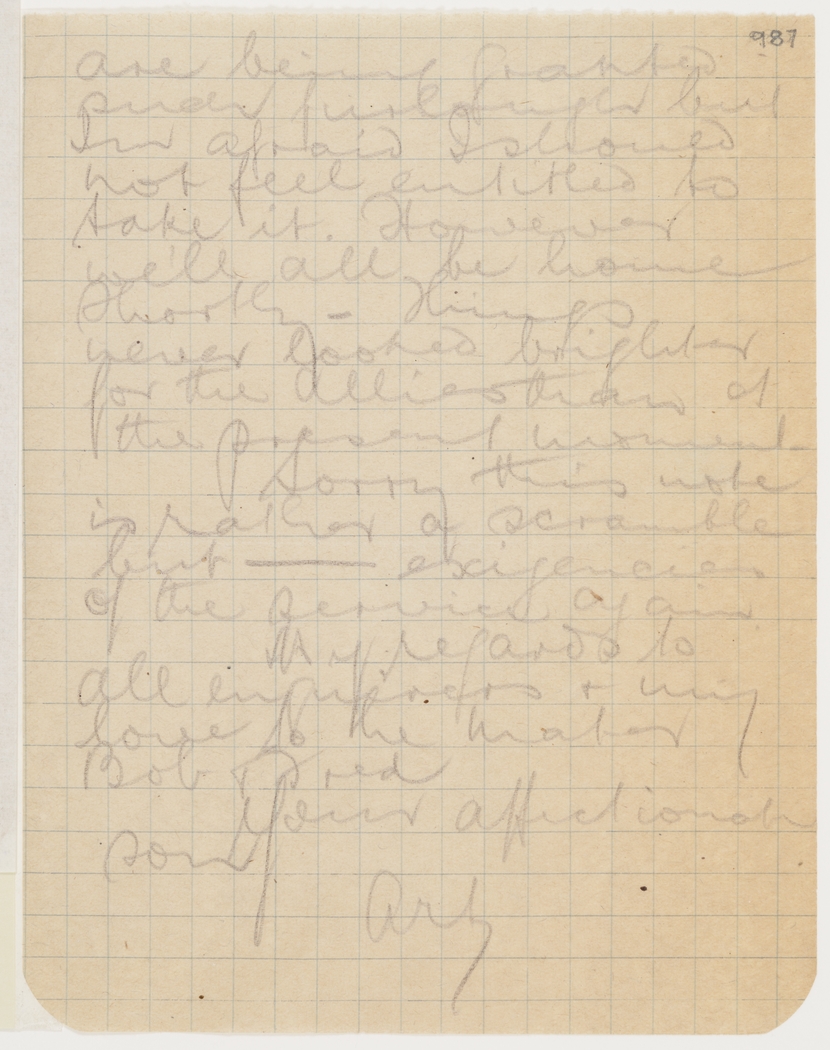 987
are being granted
such furloughs but
I'm afraid I should
not feel entitled to
take it. However
we'll all be home
shortly – Things
never looked brighter
for the Allies than at
the present moment
Sorry this note
is rather a scramble
but —— exigencies
of the service again
My regards to
all enquirers + my
love to the mater
Bob & Fred
Your affectionate
son
Art